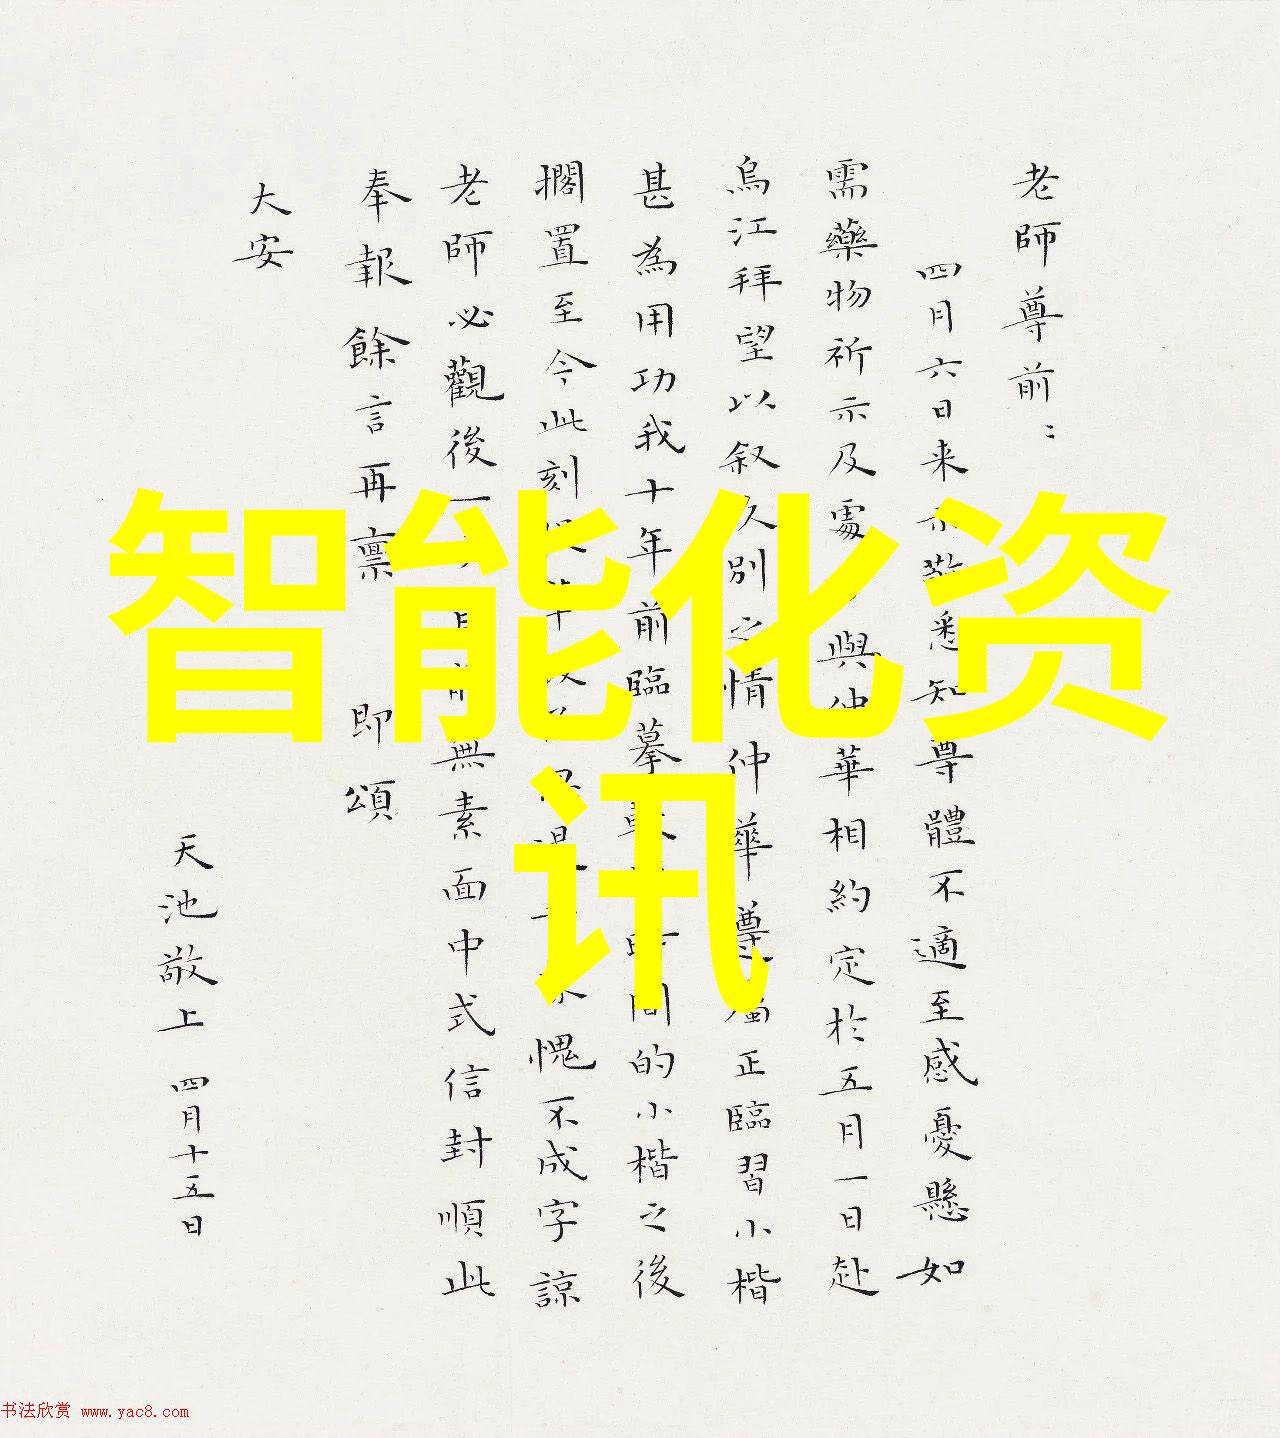 老師尊前：
四月六日来示敬悉知尊體不適至感憂懸如
需藥物祈示及處 與仲華相約定於五月一日赴
烏江拜望以叙久別之情仲華尊 正臨習小楷
甚為用功我十年前臨摹 時間的小楷之後
擱置至今此刻 愧不成字諒
老師必觀後一 無素面中式信封順此
奉報餘言再禀 即頌
大安
天池敬上 四月十五日
智能化资
讯
书法欣赏 www.yac8.com